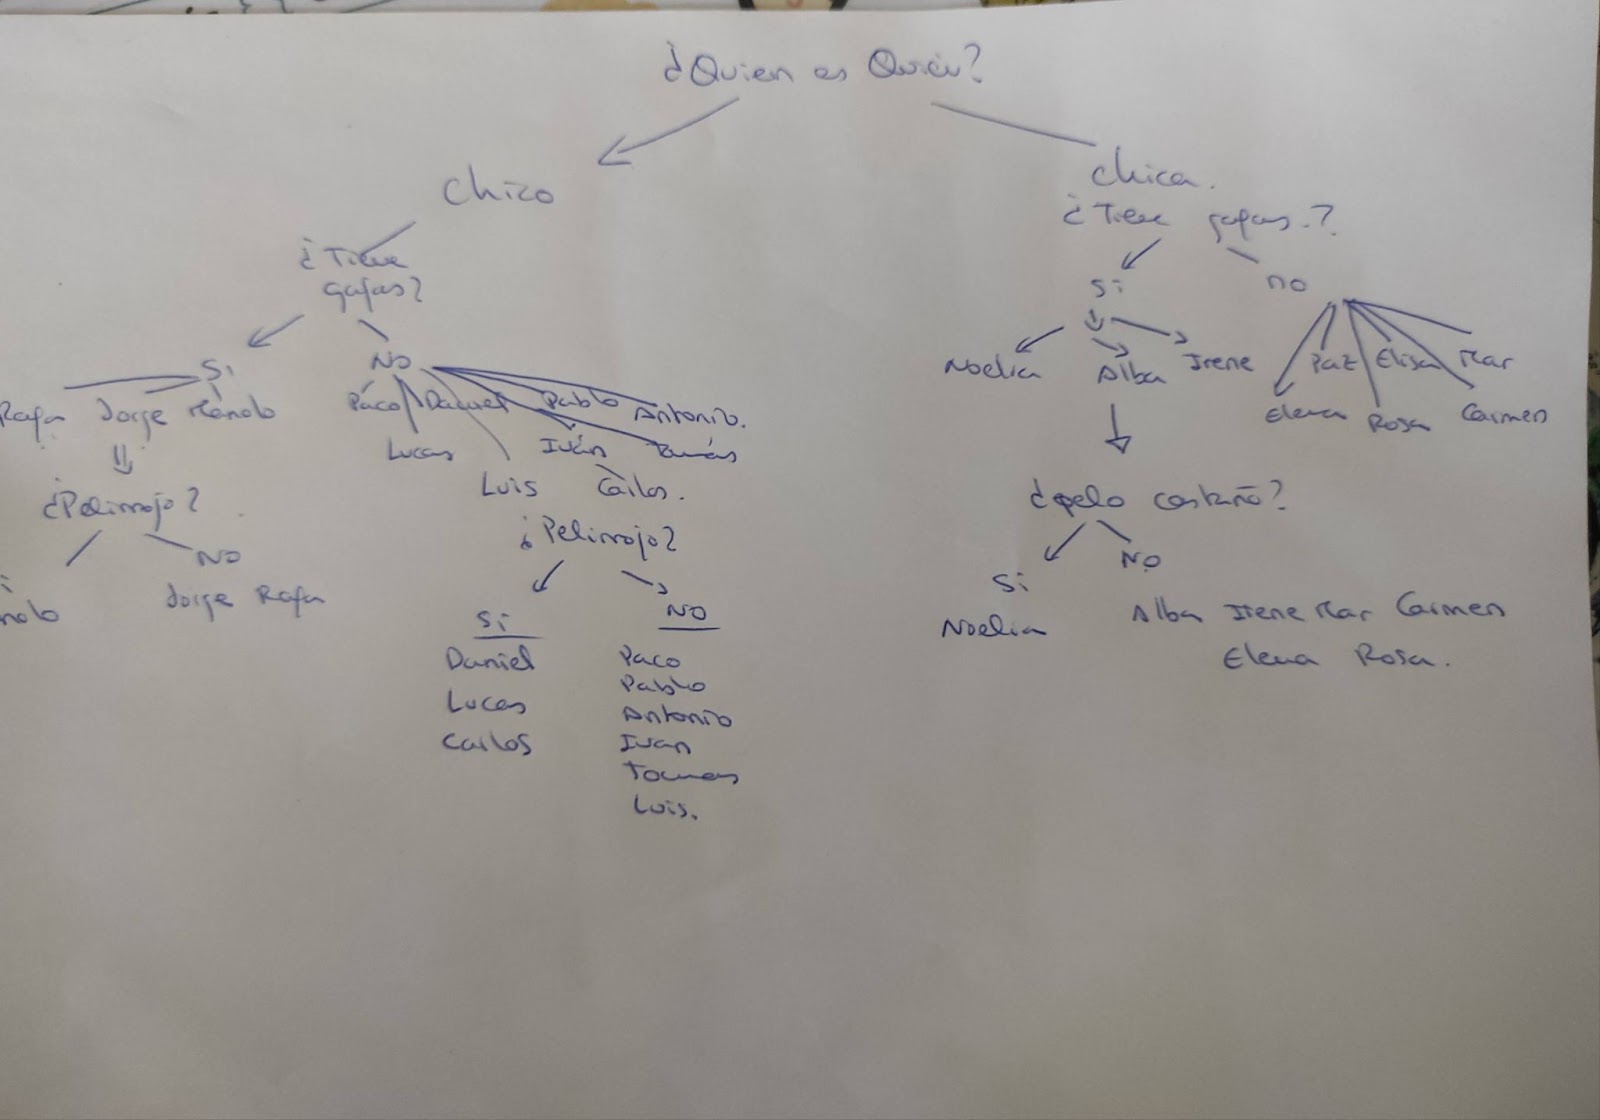 ¿Quien es Quién?
Chico
chica.
¿Tiene gafas?
¿Tiene
gafas?
Si
no
Si
NO
Noelia Alba Irene
Paz Elisa Mar
Elena Rosa Carmen
Rafa Jorge Manolo
Paco Daniel Pablo Antonio.
Lucas Iván Tomás
Luis Carlos.
¿Pelirrojo?
¿pelo castaño?
¿Pelirrojo?
NO
Jorge Rafa
nolo
Si
NO
Si
NO
Noelia
Alba Irene Mar Carmen
Elena Rosa.
Daniel
Lucas
Carlos
Paco
Pablo
Antonio
Ivan
Tomas
Luis.